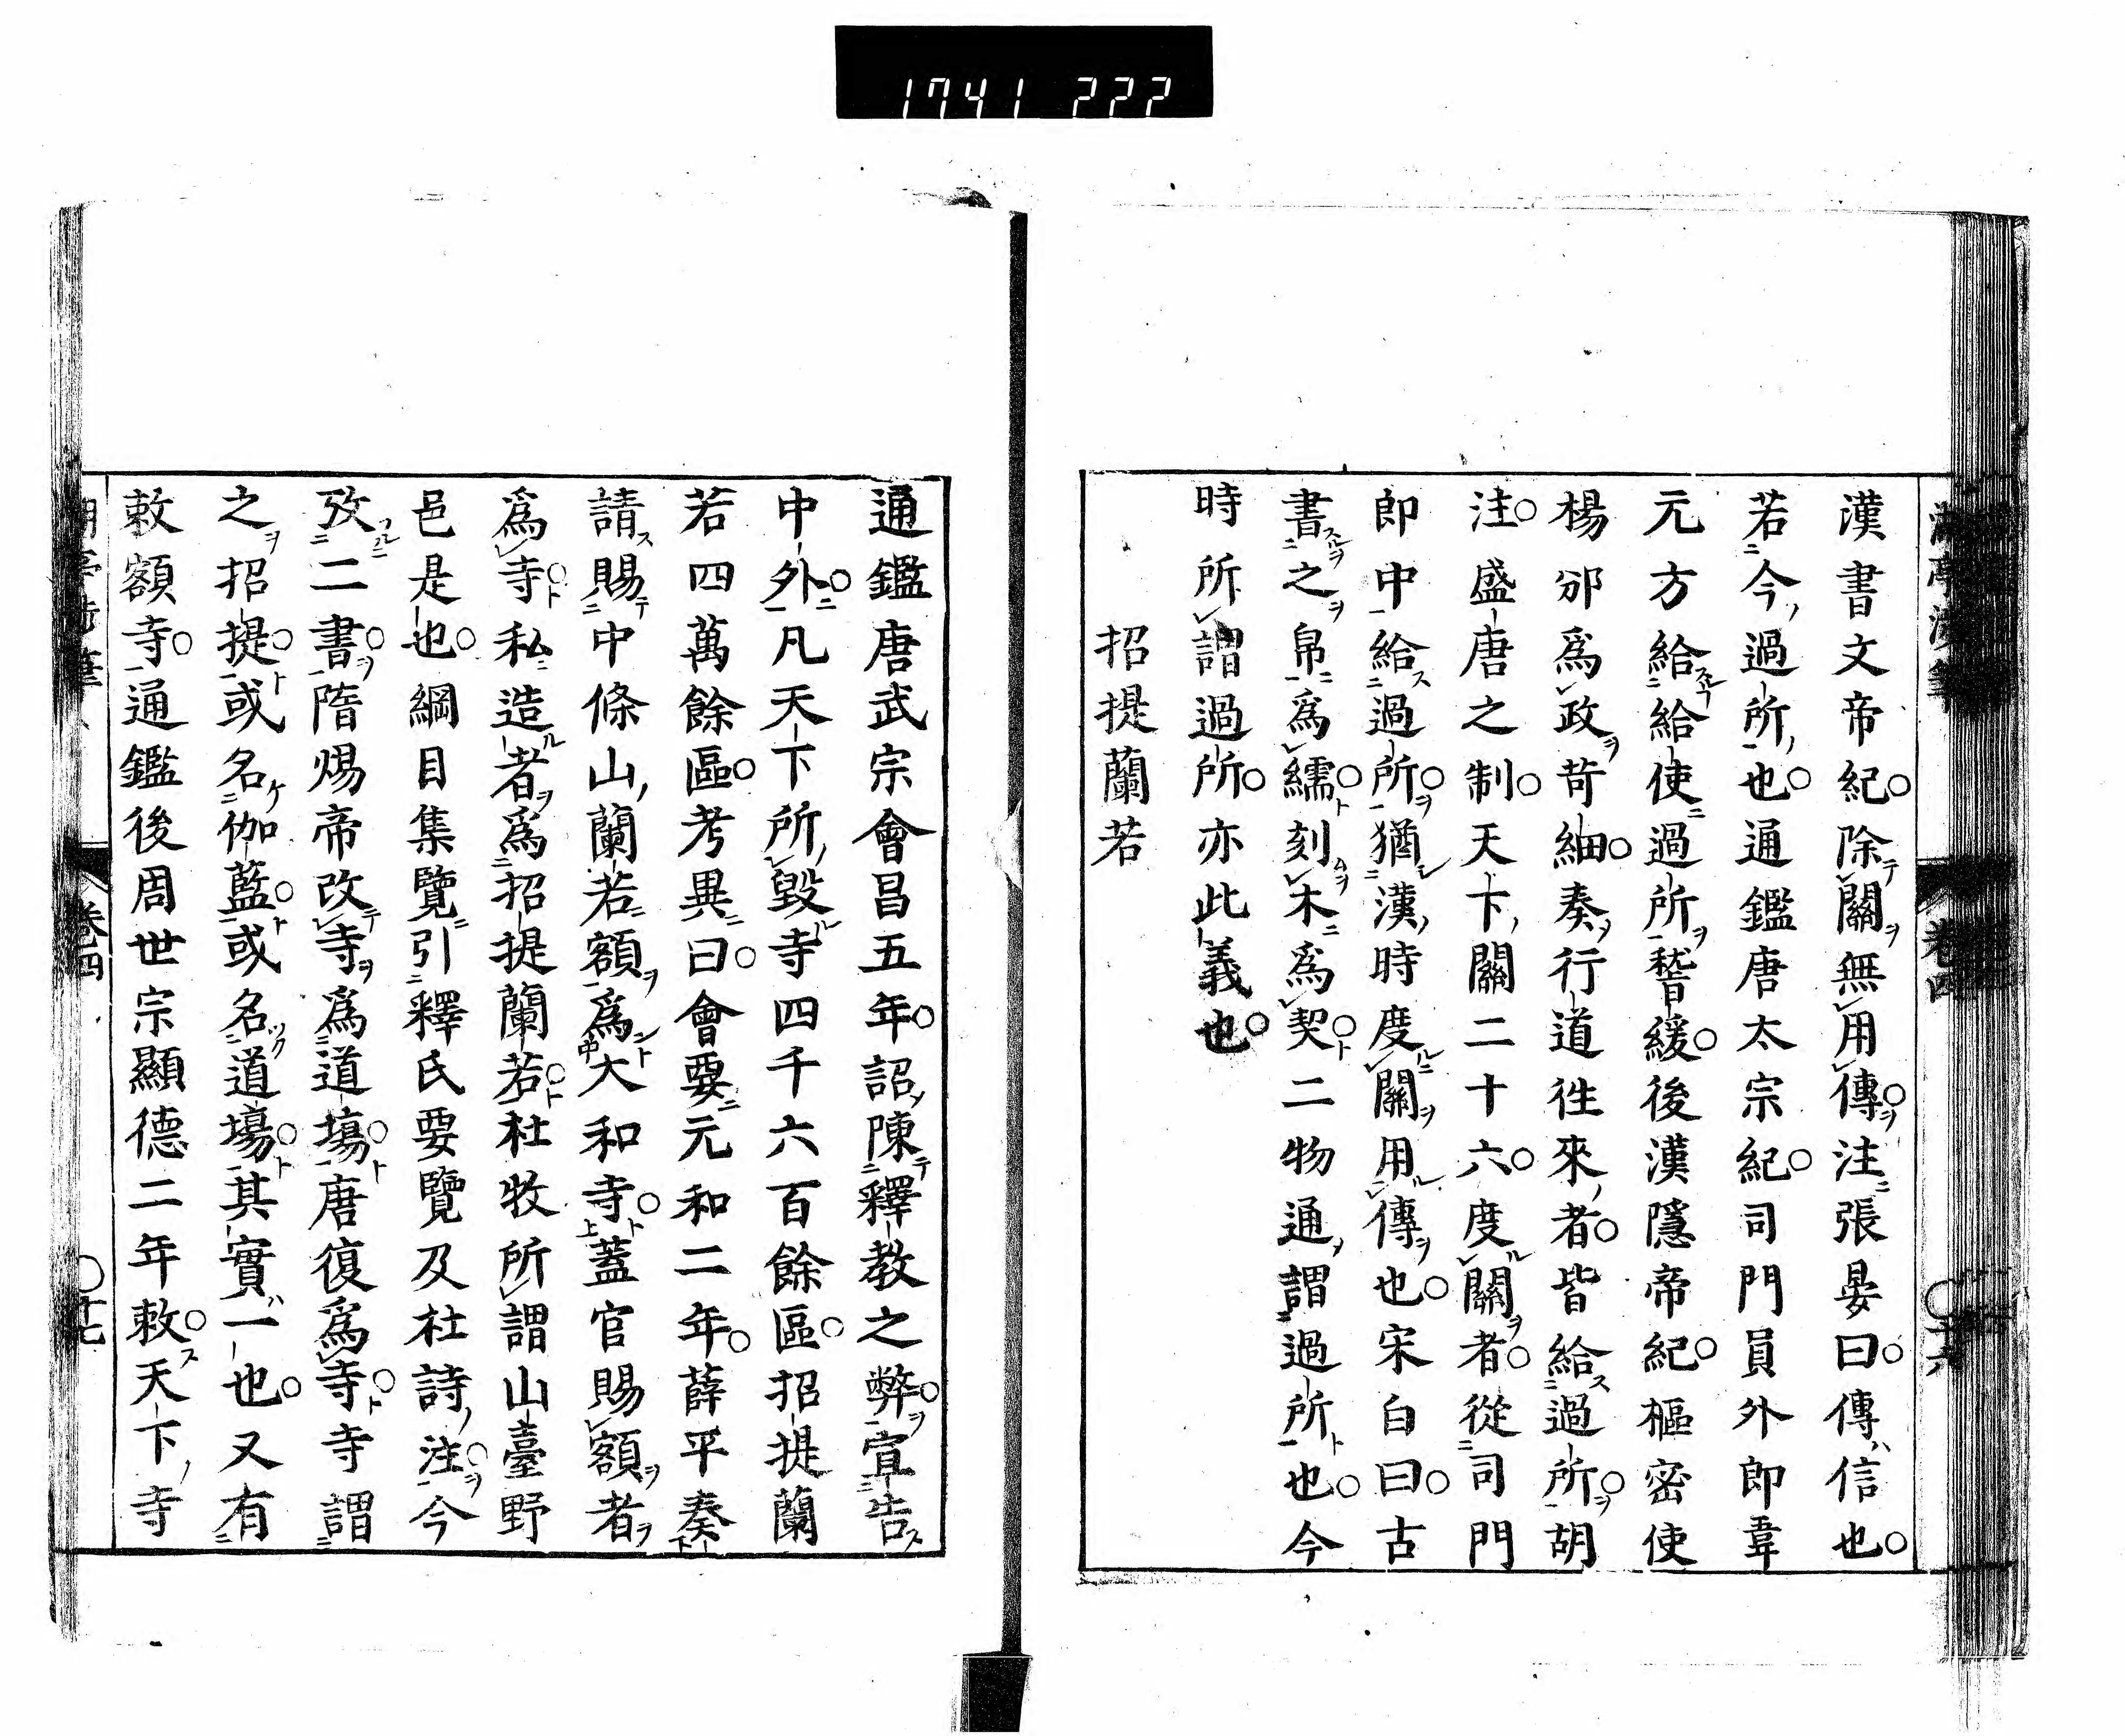 1741 222
漢書文帝紀。除關無用傳。注張晏曰。傳信也。
若今過所也。通鑑唐太宗紀。司門員外郎韋
元方給給使過所稽緩。後漢隱帝紀。樞密使
楊邠爲政苛細。奏行道往來者。皆給過所。胡
注。盛唐之制。天下關二十六。度關者。從司門
郎中給過所。猶漢時度關用傳也。宋白曰。古
書之帛爲繻。刻木爲契。二物通謂過所也。今
時所謂過所。亦此義也。
招提蘭若
通鑑唐武宗會昌五年。詔陳釋教之弊。宣告
中外。凡天下所毀寺四千六百餘區。招提蘭
若四萬餘區。考異曰。會要元和二年。薛平奏
請賜中條山蘭若額爲大和寺。蓋官賜額者
爲寺。私造者爲招提蘭若。杜牧所謂山臺野
邑是也。綱目集覽引釋氏要覽及杜詩注。今
攷二書。隋煬帝改寺爲道場。唐復爲寺。寺謂
之招提。或名伽藍。或名道場。其實一也。又有
敕額寺。通鑑後周世宗顯德二年敕。天下寺
卷四
〇十七